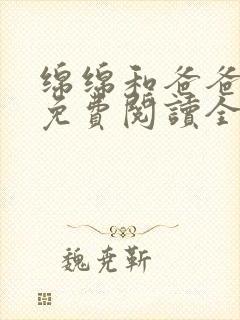 绵绵和爸爸
免費閱讀全
魏尭靳